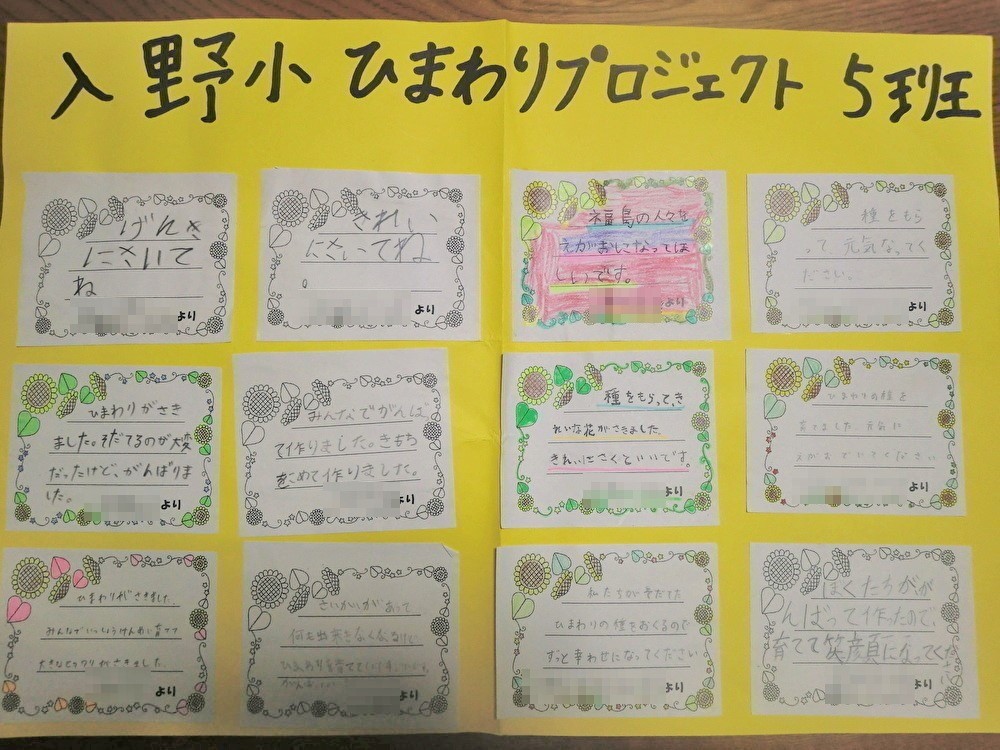 入野小 ひまわりプロジェクト 5班
げんき
にさいて
ね
より
きれい
にさいてね
。
より
福島の人々を
えがおになってほ
しいです。
より
種をもら
って 元気なってく
ださい。
より
ひまわりがさき
ました。そだてるのが大変
だったけど、がんばりま
した。
より
みんなでがんば
て作りました。きもち
をこめて作りました。
より
種をもらってき
れいな花がさきました。
きれいにさくといいです。
より
ひまわりの種を
育てました 元気に
えがおでいてください
より
ひまわりがさきました
みんなでいっしょうけんめい育てて
大きなヒマワリがさきました。
より
さいがいがあって
何も出来なくなるけど
ひまわりを育てて
より
私たちが育てた
ひまわりの種をおくるので
ずっと幸わせになってください
より
ぼくたちがが
んばって作ったので、
育てて笑顔になってくだ
さい
より